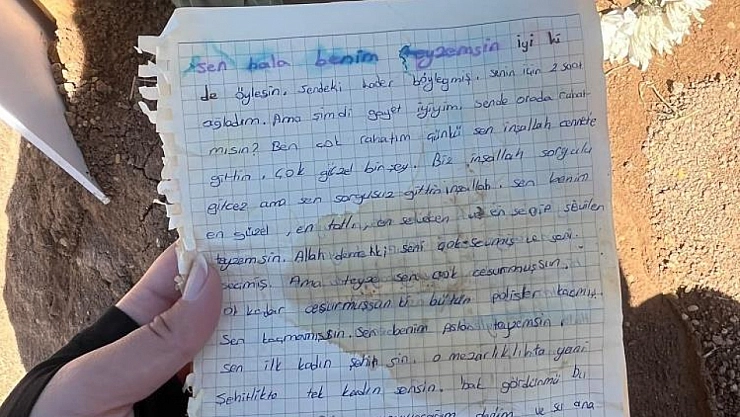 sen hala benim teyzemsin iyi ki
de öylesin. Sendeki kader böyleymiş. senin için 2 saat
ağladım. Ama şimdi gayet iyiyim, sende orada rahat
mısın? Ben çok rahatım çünkü sen inşallah cennete
gittin. Çok güzel bir şey. Biz inşallah sorgulu
gitcez ama sen sorgusuz gittin inşallah. sen benim
en güzel, en tatlı, en en sevilen
teyzemsin. Allah demekki seni çok sevmiş ve seni
seçmiş. Ama teyze sen çok cesurmuşsun.
O kadar cesurmuşsun ki bütün polisler kaçmış
sen kaçmamışsın. Sen benim Aslan teyzemsin.
sen ilk kadın şehitsin. o mezarlıklıkta yani
Şehitlikte tek kadın sensin. bak gördünmü bu
ve su ana